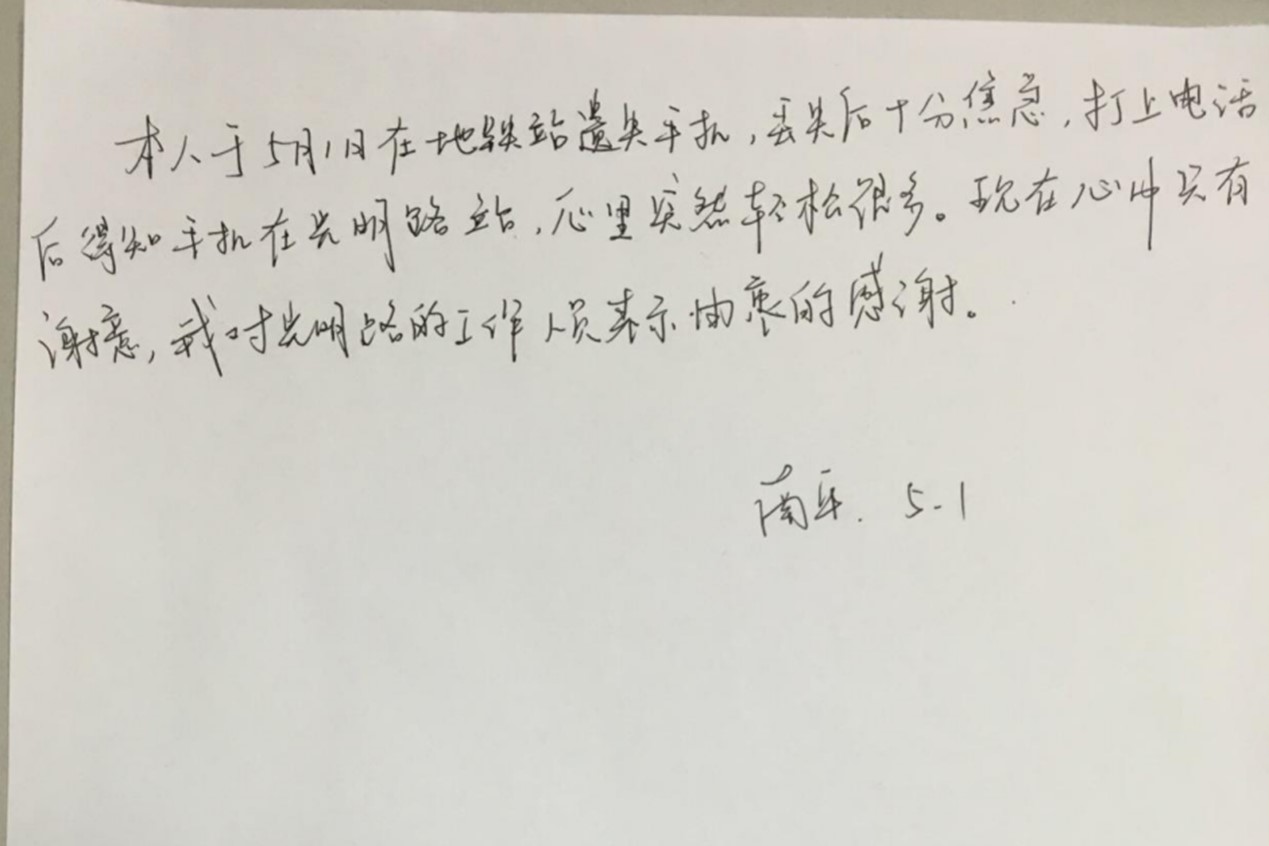 本人于5月1日在地铁站遗失手机，丢失后十分焦急，打上电话
后得知手机在光明路站，心里突然轻松很多。现在心中只有
谢意，我对光明路的工作人员表示由衷的感谢。
5-1